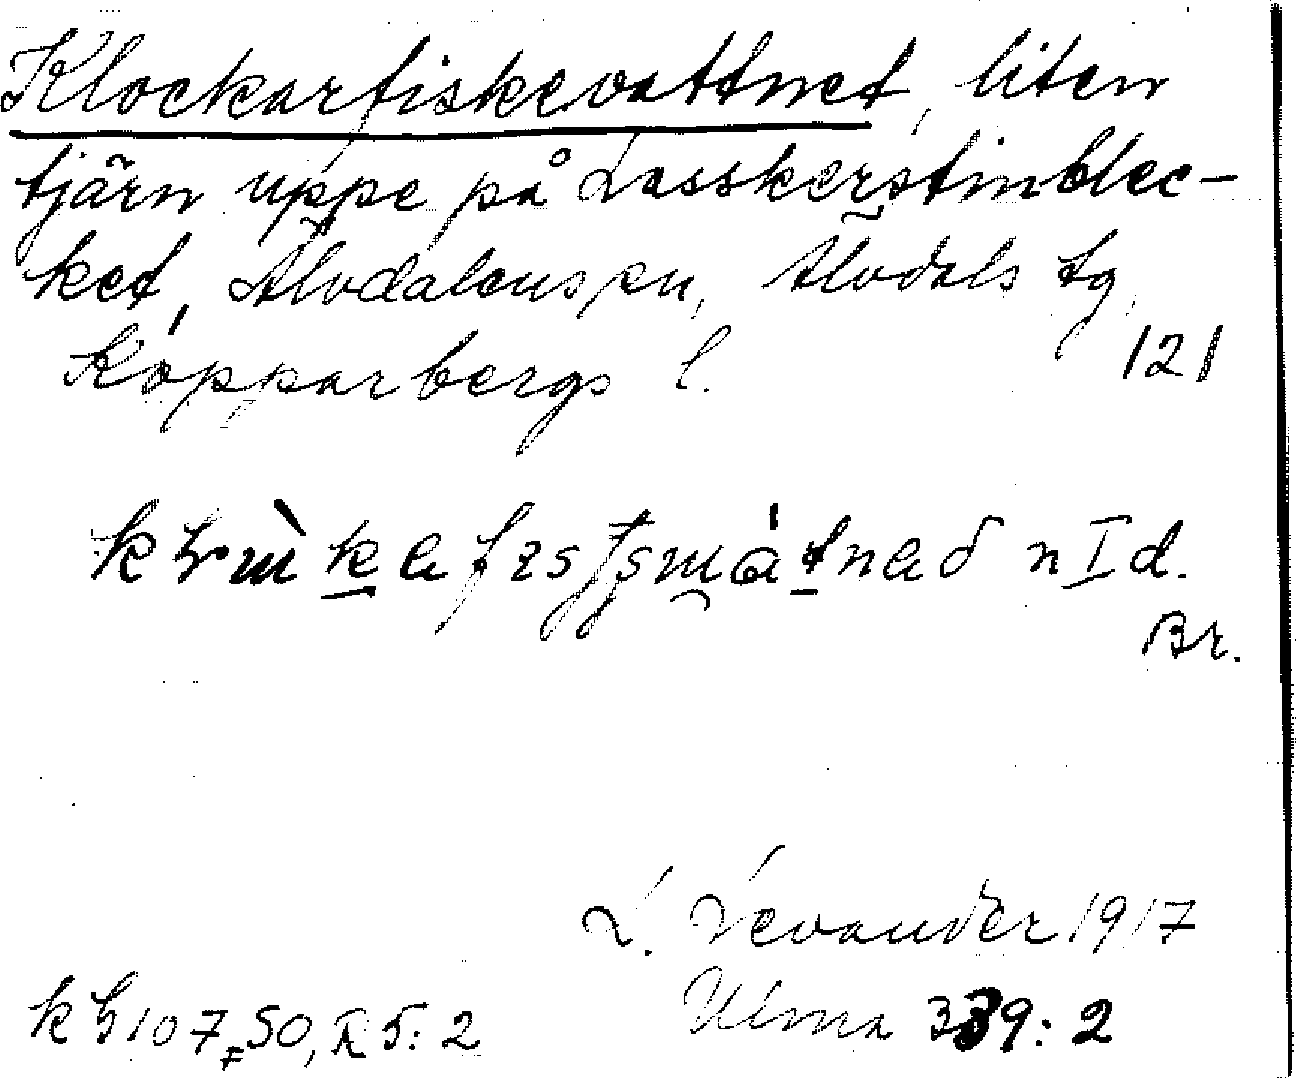 Klockarfiskevattnet, liten
tjärn uppe på Lasskerstinblec-
ket, Älvdalens sn, Älvdals tg,
Kopparbergs l. 121
n I d.
Br.
L. Levander 1917
Ulma 339:2
50, R 5:2